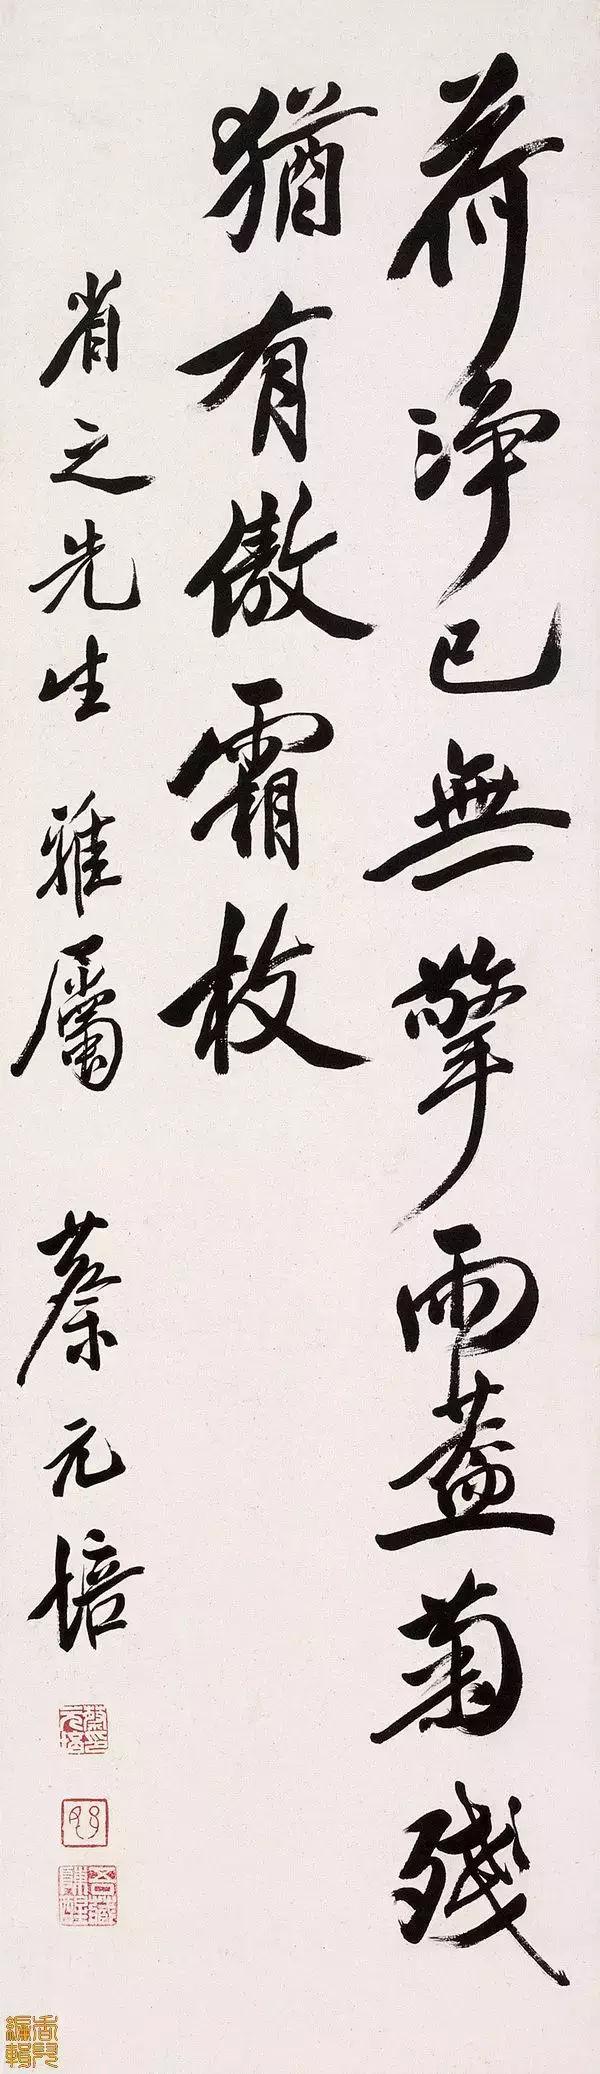 荷淨已無擎雨蓋菊殘
猶有傲霜枝
省之先生雅屬 蔡元培
蔡印元培